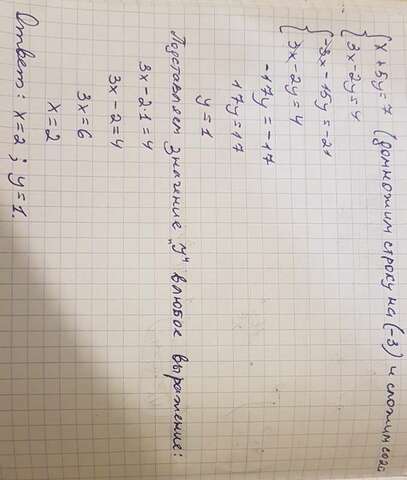 { x + 5y = 7 (домножим строку на (-3) и сложим
{ 3x - 2y = 4
{ -3x - 15y = -21
{ 3x - 2y = 4
-17y = -17
17y = 17
y = 1
Подставляем значение "y" в любое выражение:
3x - 2·1 = 4
3x - 2 = 4
3x = 6
x = 2
Ответ: x = 2 ; y = 1.